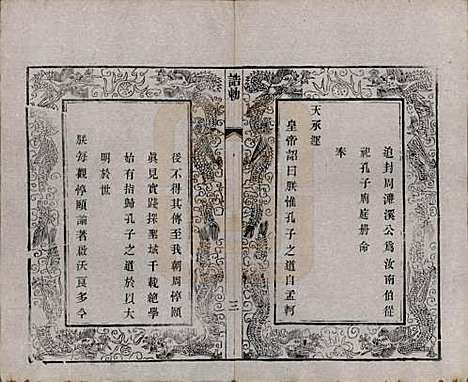 追封周濂溪公爲汝南伯從
祀孔子廟庭冊命
奉
天承運
皇帝詔曰朕惟孔子之道自孟軻
誥勅
三
後不得其傳至我朝周惇頤
眞見實踐探聖域千載絶學
始有指歸孔子之道於以大
明於世
朕每觀惇頤論著啟沃良多今